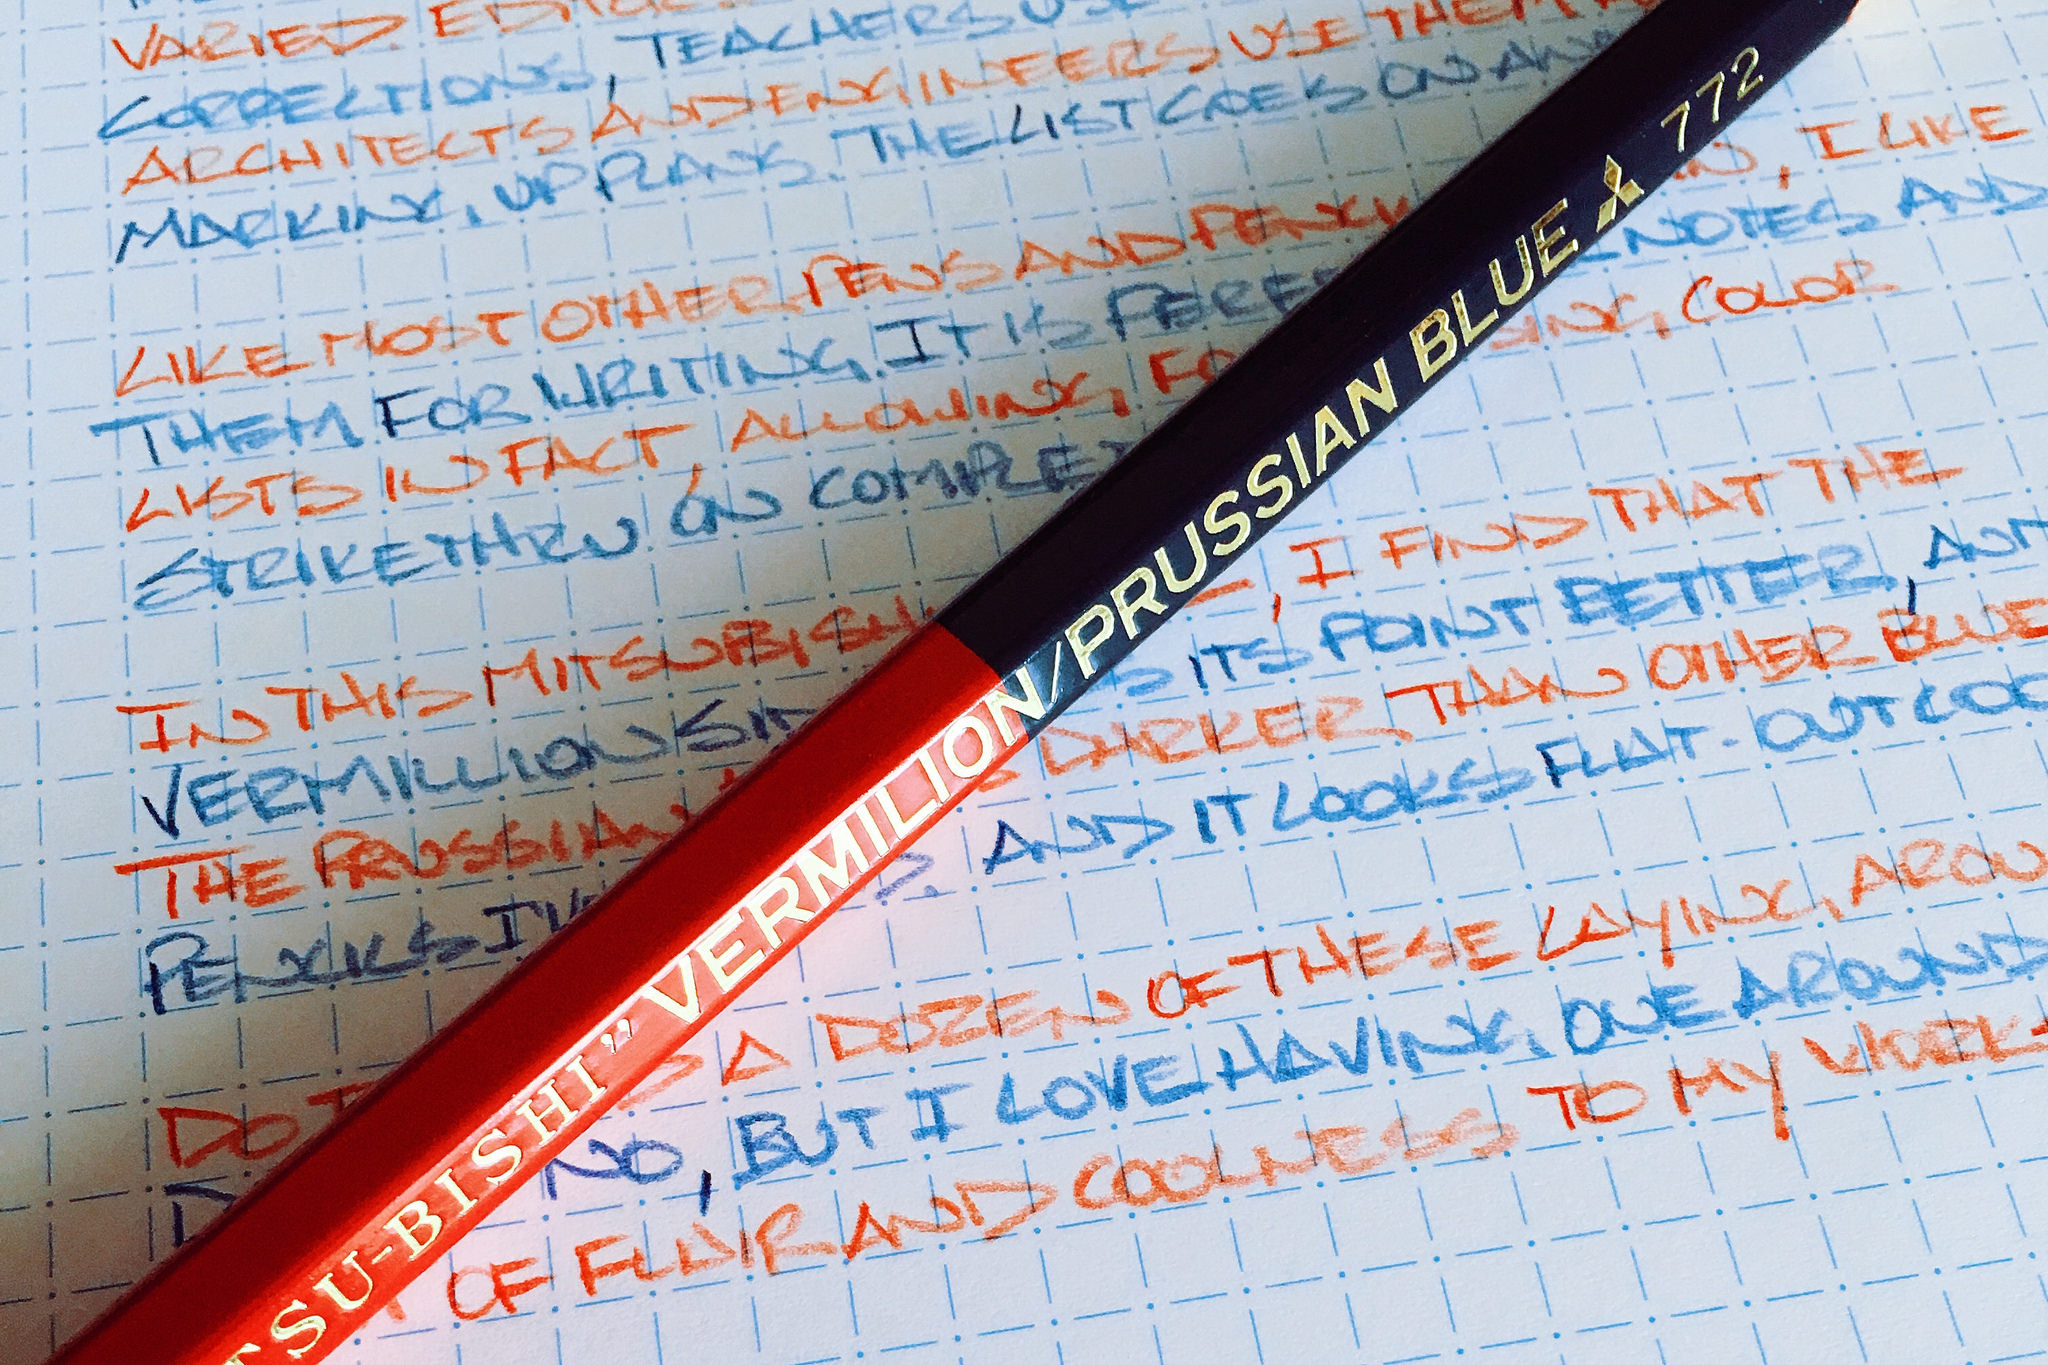 VARIED. 
CORRECTIONS, TEACHERS USE
ARCHITECTS AND ENGINEERS USE THEM
MARKING UP PLANS. THE LIST GOES ON AN
LIKE MOST OTHER PENS AND PENCIL , I LIKE
THEM FOR WRITING. IT IS PERFE NOTES AND
LISTS IN FACT, ALLOWING FO SING COLOR
STRIKETHRU ON COMPLE
IN THIS MITSUBISHI , I FIND THAT THE
VERMILLION SI ITS' POINT BETTER, AND
THE PRUSSIAN IS DARKER THAN OTHER BLUE
PENCILS I'V , AND IT LOOKS FLAT-OUT COO
DO A DOZEN OF THESE LAYING AROU
D NO, BUT I LOVE HAVING ONE AROUND
OF FLAIR AND COOLNESS TO MY WORK-
TSU-BISHI" VERMILION/PRUSSIAN BLUE 772